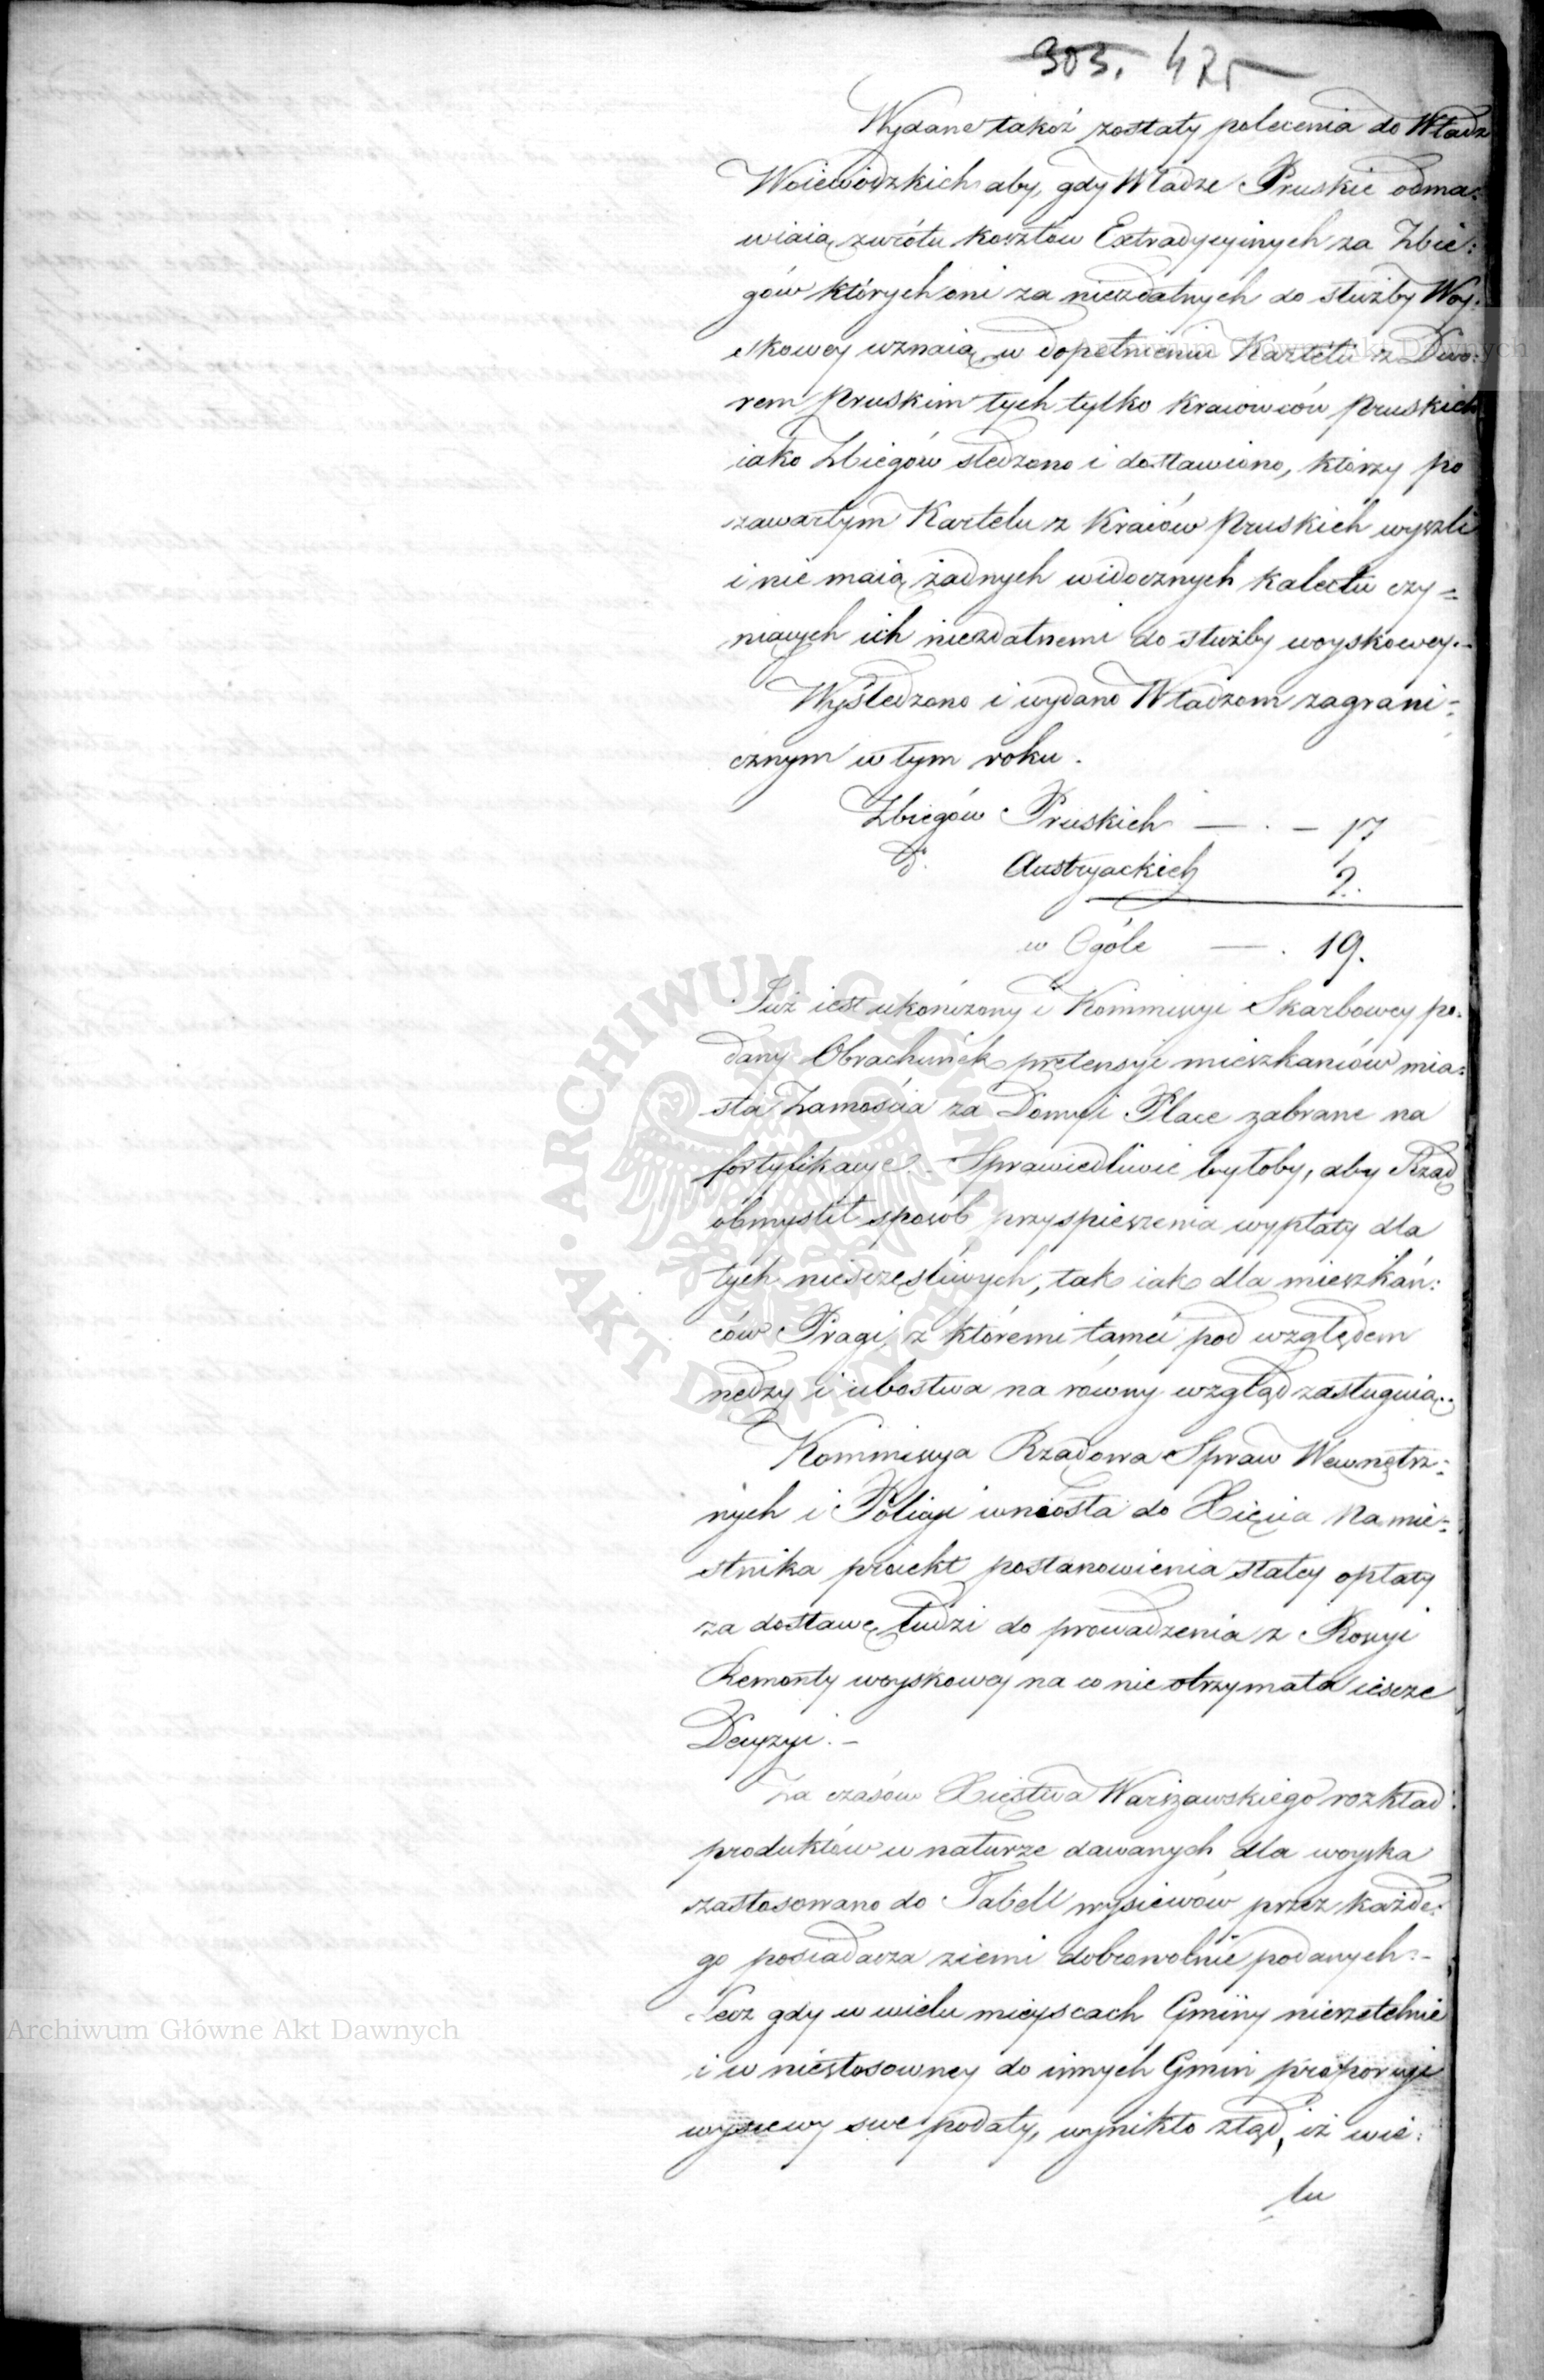 303. 425
Wydane takoż zostały polecenia do Władz
Woiewódzkich aby, gdy Władze Pruskie odma:
wiaią zwrótu kosztów Extradycyinych za Zbie:
gów których oni za niezdatnych do służby Woy:
skowey uznaią, w dopełnieniu Kartelu z Dwo:
rem Pruskim tych tylko kraiowców Pruskich
iako Zbiegów sledzono i dostawiono, którzy po
zawartym Kartelu z Kraiów Pruskich wyszli
i nie maią żadnych widocznych kalectw czy=
niących ich niezdatnemi do służby woyskowey.-
Wyśledzono i wydano Władzom zagrani-
cznym w tym roku.
Zbiegów Pruskich — . – 17
do. Austryackich 2.
w Ogóle — . 19.
Już iest ukończony i Kommissyi Skarbowey po:
dany Obrachunek pretensyi mieszkańców mia:
sta Zamościa za Domy i Place zabrane na
fortyfikacye. - Sprawiedliwie byłoby, aby Rząd
obmyslił sposób przyspieszenia wypłaty dla
tych nieszczęśliwych, tak iak dla mieszkań:
ców Pragi, z któremi tamci pod względem
nędzy i ubostwa na równy wzgląd zasługuią.
Kommissya Rządowa Spraw Wewnętrz:
nych i Policyi wniosła do Xięcia Namie:
stnika proiekt postanowienia stałey opłaty
za dostawę ludzi do prowadzenia z Rossyi
Remonty woyskowey na co nie otrzymała ieszcze
Decyzyi. -
Za czasów Xięstwa Warszawskiego rozkład
produktów w naturze dawanych dla woyska
zastosowano do Tabell wysiewów przez każde:
go posiadacza ziemi dobrowolnie podanych. -
Lecz gdy w wielu mieyscach Gminy nierzetelnie
i w niestosowney do innych Gmin proporcyi
wysiewy swe podały, wynikło ztąd, iż wie:
lu
Archiwum Główne Akt Dawnych
Archiwum Główne Akt Dawnych
ARCHIWUM GŁÓWNE · AKT DAWNYCH ·